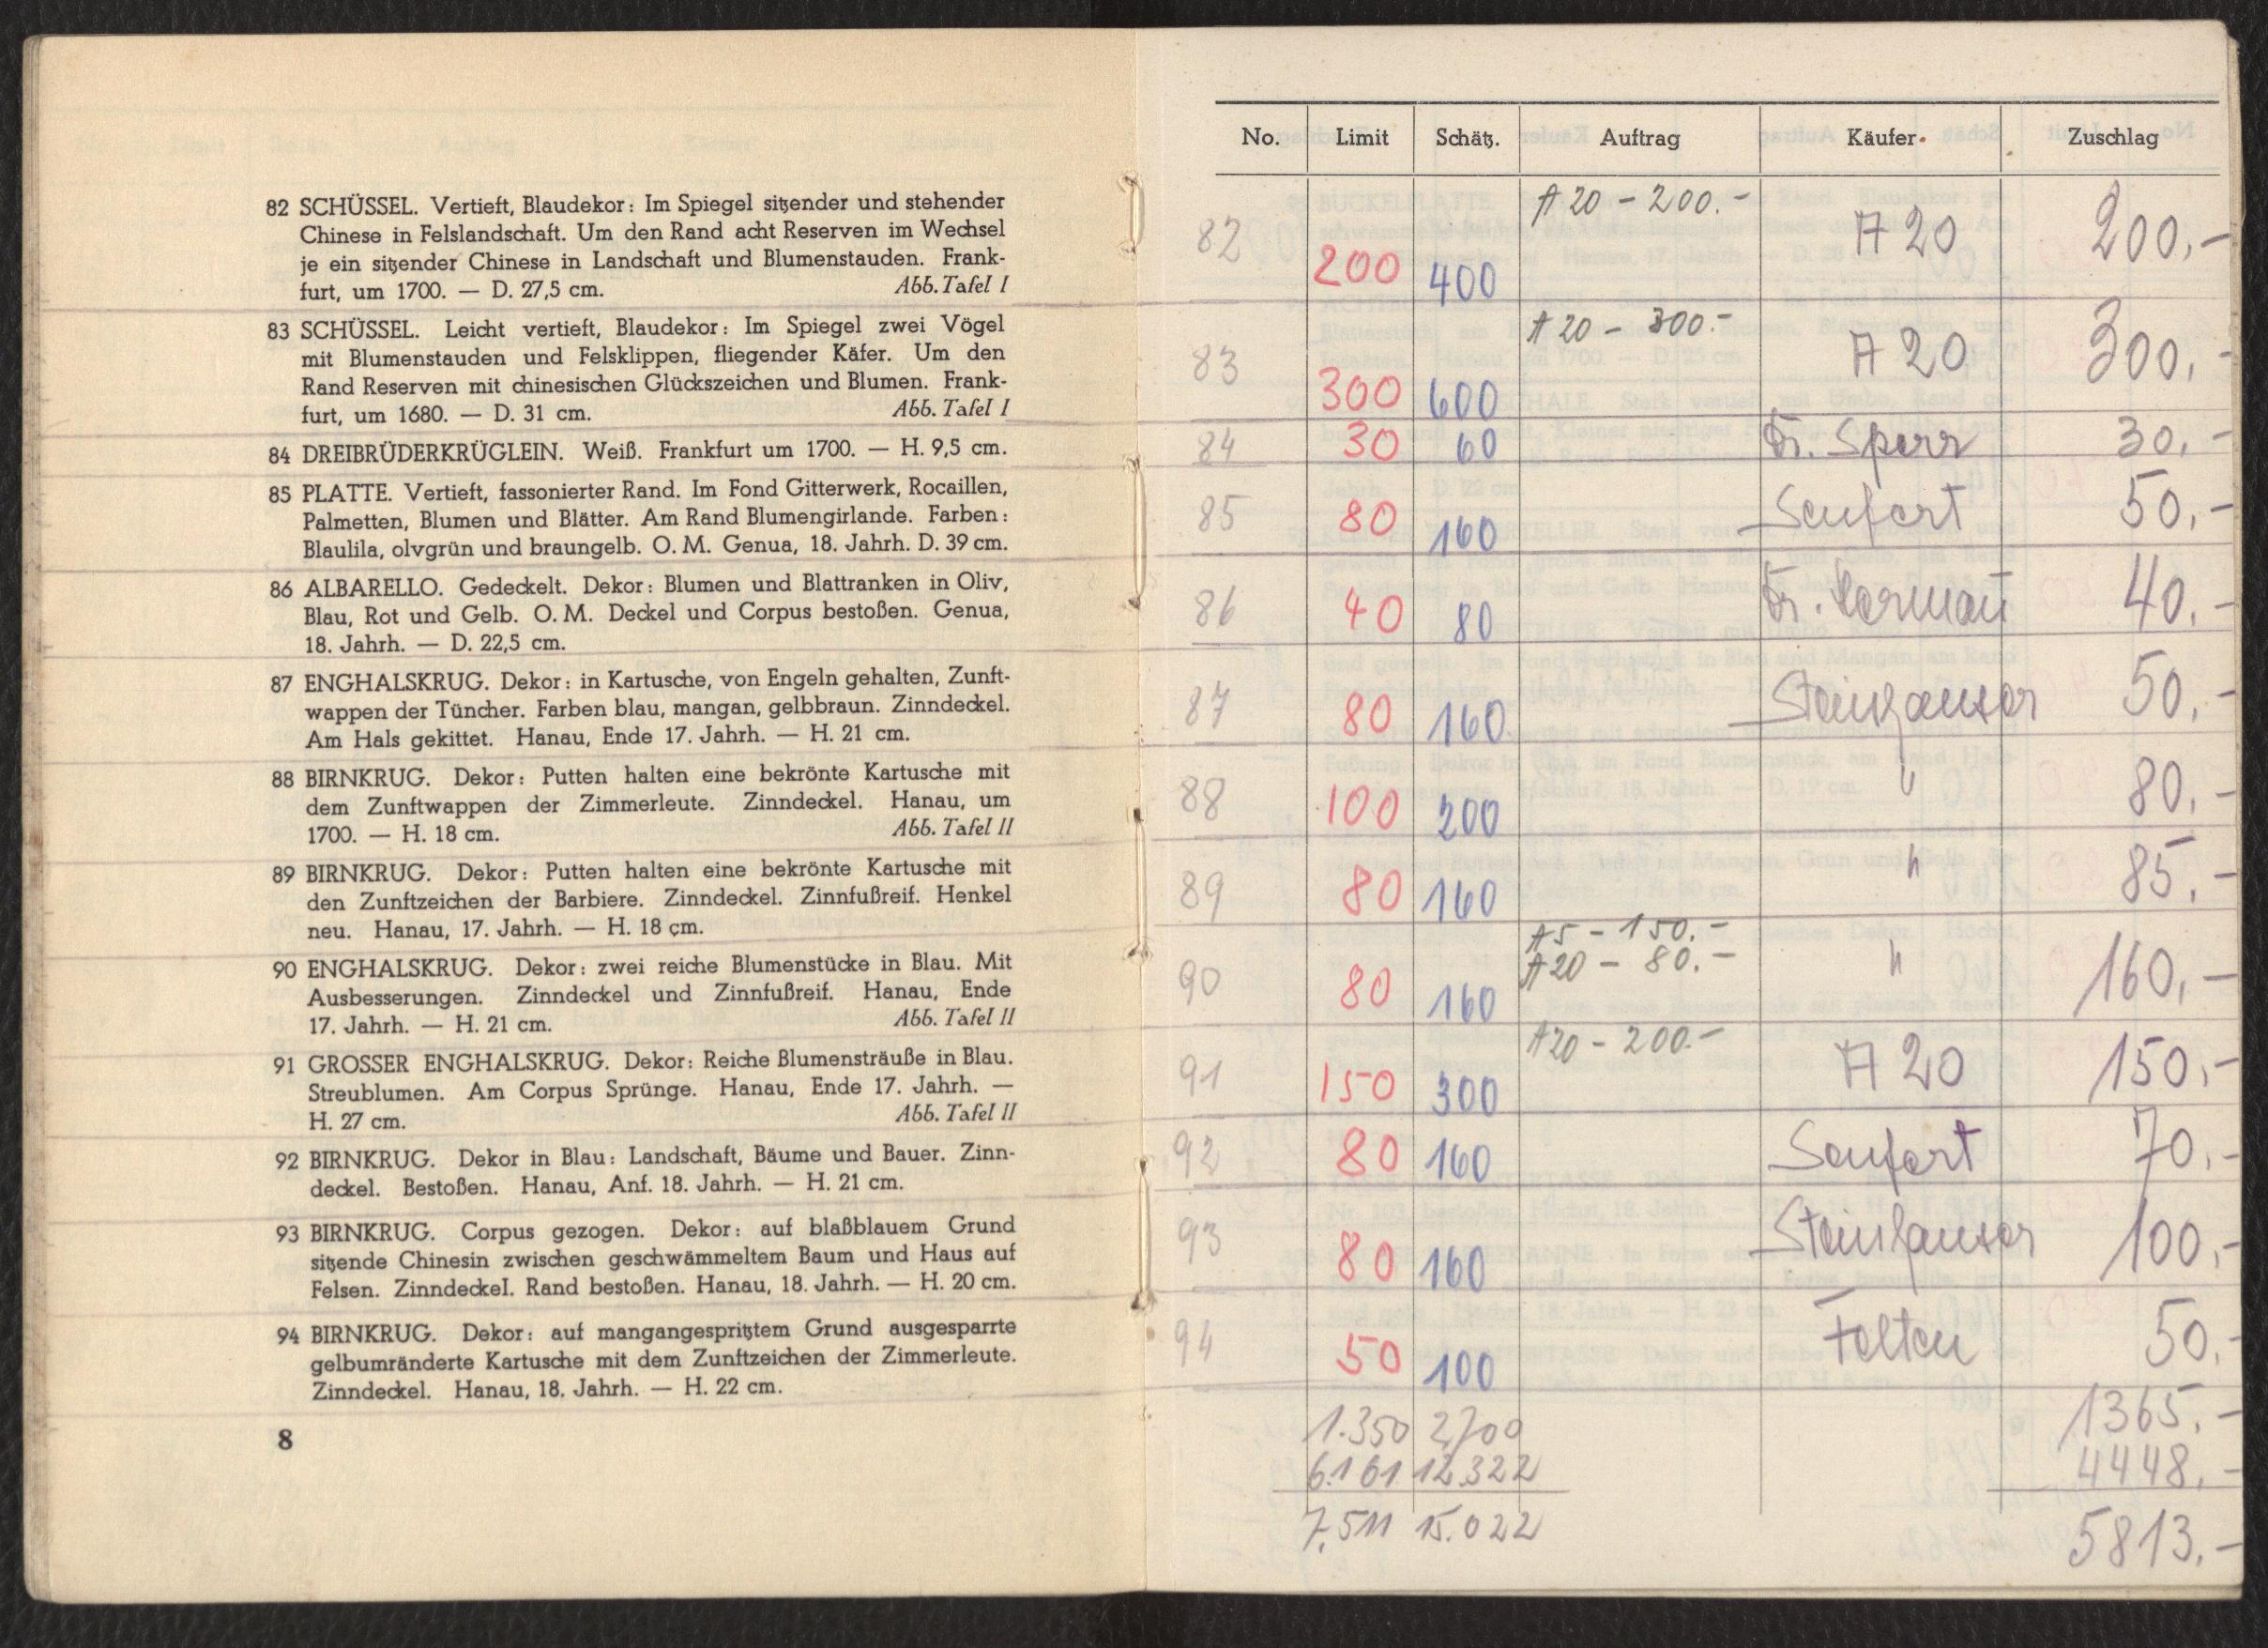 82 SCHÜSSEL. Vertieft, Blaudekor: Im Spiegel sitzender und stehender
Chinese in Felslandschaft. Um den Rand acht Reserven im Wechsel
je ein sitzender Chinese in Landschaft und Blumenstauden. Frank-
furt, um 1700. — D. 27,5 cm. Abb. Tafel I
83 SCHÜSSEL. Leicht vertieft, Blaudekor: Im Spiegel zwei Vögel
mit Blumenstauden und Felsklippen, fliegender Käfer. Um den
Rand Reserven mit chinesischen Glückszeichen und Blumen. Frank-
furt, um 1680. — D. 31 cm. Abb. Tafel I
84 DREIBRÜDERKRÜGLEIN. Weiß. Frankfurt um 1700. — H. 9,5 cm.
85 PLATTE. Vertieft, fassonierter Rand. Im Fond Gitterwerk, Rocaillen,
Palmetten, Blumen und Blätter. Am Rand Blumengirlande. Farben:
Blaulila, olvgrün und braungelb. O. M. Genua, 18. Jahrh. D. 39 cm.
86 ALBARELLO. Gedeckelt. Dekor: Blumen und Blattranken in Oliv,
Blau, Rot und Gelb. O. M. Deckel und Corpus bestoßen. Genua,
18. Jahrh. — D. 22,5 cm.
87 ENGHALSKRUG. Dekor: in Kartusche, von Engeln gehalten, Zunft-
wappen der Tüncher. Farben blau, mangan, gelbbraun. Zinndeckel.
Am Hals gekittet. Hanau, Ende 17. Jahrh. — H. 21 cm.
88 BIRNKRUG. Dekor: Putten halten eine bekrönte Kartusche mit
dem Zunftwappen der Zimmerleute. Zinndeckel. Hanau, um
1700. — H. 18 cm. Abb. Tafel II
89 BIRNKRUG. Dekor: Putten halten eine bekrönte Kartusche mit
den Zunftzeichen der Barbiere. Zinndeckel. Zinnfußreif. Henkel
neu. Hanau, 17. Jahrh. — H. 18 cm.
90 ENGHALSKRUG. Dekor: zwei reiche Blumenstücke in Blau. Mit
Ausbesserungen. Zinndeckel und Zinnfußreif. Hanau, Ende
17. Jahrh. — H. 21 cm. Abb. Tafel II
91 GROSSER ENGHALSKRUG. Dekor: Reiche Blumensträuße in Blau.
Streublumen. Am Corpus Sprünge. Hanau, Ende 17. Jahrh. —
H. 27 cm. Abb. Tafel II
92 BIRNKRUG. Dekor in Blau: Landschaft, Bäume und Bauer. Zinn-
deckel. Bestoßen. Hanau, Anf. 18. Jahrh. — H. 21 cm.
93 BIRNKRUG. Corpus gezogen. Dekor: auf blaßblauem Grund
sitzende Chinesin zwischen geschwämmeltem Baum und Haus auf
Felsen. Zinndeckel. Rand bestoßen. Hanau, 18. Jahrh. — H. 20 cm.
94 BIRNKRUG. Dekor: auf mangangespritztem Grund ausgesparrte
gelbumränderte Kartusche mit dem Zunftzeichen der Zimmerleute.
Zinndeckel. Hanau, 18. Jahrh. — H. 22 cm.
8
No. Limit Schätz. Auftrag Käufer Zuschlag
82 200 400 A 20 - 200.- A 20 200,-
83 300 600 A 20 - 300.- A 20 300,-
84 30 60 Dr. Sperr 30,-
85 80 160 Seufert 50,-
86 40 80 Dr. 40,-
87 80 160 Steinhauser 50,-
88 100 200 " 80,-
89 80 160 " 85,-
90 80 160 A5 - 150.- " 160,-
A20 - 80.-
91 150 300 A20 - 200.- A 20 150,-
92 80 160 Seufert 70,-
93 80 160 Steinhauser 100,-
94 50 100 Felten 50,-
1.350 2700 1365,-
6.161 12.322 4448,-
7.511 15.022 5813,-